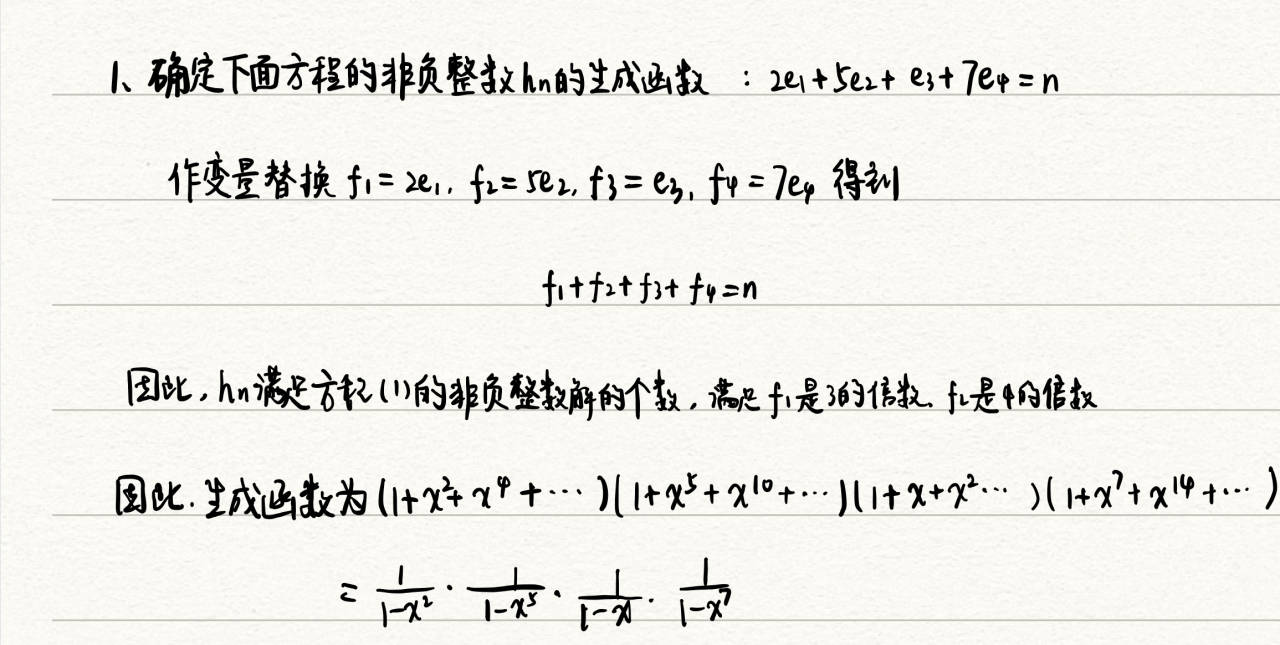 1、确定下面方程的非负整数hn的生成函数 : 2e₁+5e₂+e₃+7e₄=n
作变量替换 f₁=2e₁, f₂=5e₂, f₃=e₃, f₄=7e₄ 得到
f₁+f₂+f₃+f₄=n
因此,hn满足方程(1)的非负整数解的个数,满足f₁是3的倍数、f₂是4的倍数
因此.生成函数为(1+x²+x⁴+⋯)(1+x⁵+x¹⁰+⋯)(1+x+x²⋯)(1+x⁷+x¹⁴+⋯)
= 1/(1-x²) · 1/(1-x⁵) · 1/(1-x) · 1/(1-x⁷)